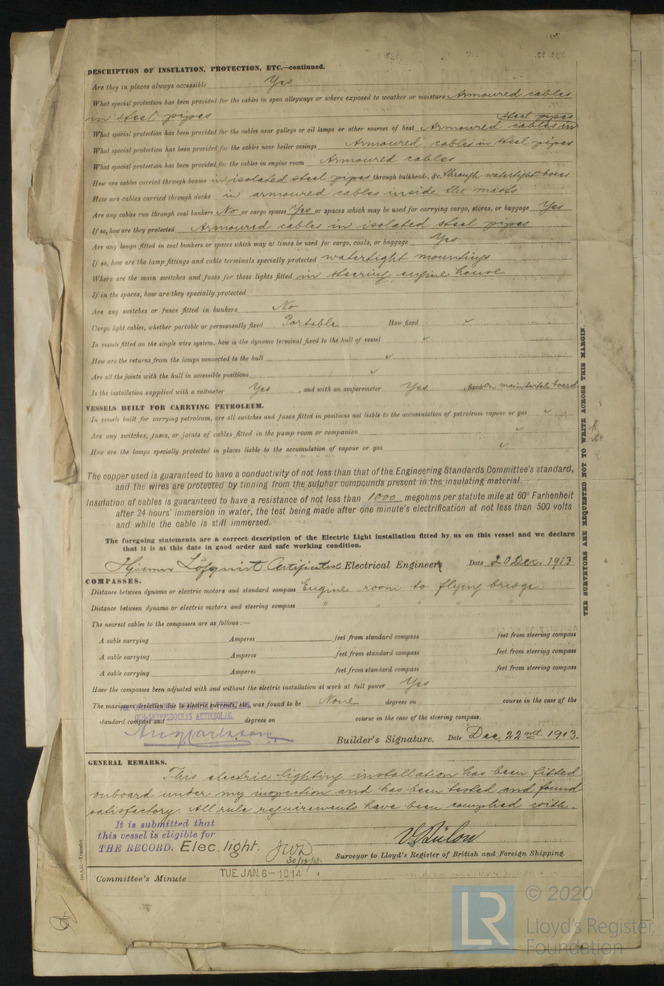 DESCRIPTION OF INSULATION, PROTECTION, ETC.—continued.
Are they in places always accessible Yes
What special protection has been provided for the cables in open alleyways or where exposed to weather or moisture Armoured cables
in steel pipes steel pipes
What special protection has been provided for the cables near galleys or oil lamps or other sources of heat Armoured cables in
What special protection has been provided for the cables near boiler casings Armoured cables in steel pipes
What special protection has been provided for the cables in engine room Armoured cables
How are cables carried through beams in isolated steel pipes through bulkheads, &c. through watertight boxes
How are cables carried through decks in armoured cables inside the masts
Are any cables run through coal bunkers No or cargo spaces Yes or spaces which may be used for carrying cargo, stores, or baggage Yes
If so, how are they protected Armoured cables in isolated steel pipes
Are any lamps fitted in coal bunkers or spaces which may at times be used for cargo, coals, or baggage Yes
If so, how are the lamp fittings and cable terminals specially protected watertight mountings
Where are the main switches and fuses for these lights fitted in steering engine house
If in the spaces, how are they specially protected
Are any switches or fuses fitted in bunkers No
Cargo light cables, whether portable or permanently fixed Portable How fixed
In vessels fitted on the single wire system, how is the dynamo terminal fixed to the hull of vessel
How are the returns from the lamps connected to the hull
Are all the joints with the hull in accessible positions
Is the installation supplied with a voltmeter Yes, and with an amperemeter Yes, fixed on main switch board
VESSELS BUILT FOR CARRYING PETROLEUM.
In vessels built for carrying petroleum, are all switches and fuses fitted in positions not liable to the accumulation of petroleum vapour or gas
Are any switches, fuses, or joints of cables fitted in the pump room or companion
How are the lamps specially protected in places liable to the accumulation of vapour or gas
The copper used is guaranteed to have a conductivity of not less than that of the Engineering Standards Committee's standard,
and the wires are protected by tinning from the sulphur compounds present in the insulating material.
Insulation of cables is guaranteed to have a resistance of not less than 1000 megohms per statute mile at 60° Farhenheit
after 24 hours' immersion in water, the test being made after one minute's electrification at not less than 500 volts
and while the cable is still immersed.
The foregoing statements are a correct description of the Electric Light installation fitted by us on this vessel and we declare
that it is at this date in good order and safe working condition.
Löfqvist Electrical Engineers Date 20 Dec. 1913
COMPASSES.
Distance between dynamo or electric motors and standard compass Engine room to flying bridge
Distance between dynamo or electric motors and steering compass " " " "
The nearest cables to the compasses are as follows:—
A cable carrying Amperes feet from standard compass feet from steering compass
A cable carrying Amperes feet from standard compass feet from steering compass
A cable carrying Amperes feet from standard compass feet from steering compass
Have the compasses been adjusted with and without the electric installation at work at full power Yes
The maximum deviation due to electric currents, etc. was found to be None degrees on course in the case of the
standard compass and degrees on course in the case of the steering compass.
Builder's Signature. Date Dec 22nd 1913.
GENERAL REMARKS.
This electric lighting installation has been fitted
onboard under my inspection and has been tested and found
satisfactory. All rule requirements have been complied with.
It is submitted that
this vessel is eligible for
THE RECORD. Elec. light.
Surveyor to Lloyd's Register of British and Foreign Shipping.
Committee's Minute TUE. JAN. 6 - 1914
THE SURVEYORS ARE REQUESTED NOT TO WRITE ACROSS THIS MARGIN
LR
© 2020
Lloyd's Register
Foundation